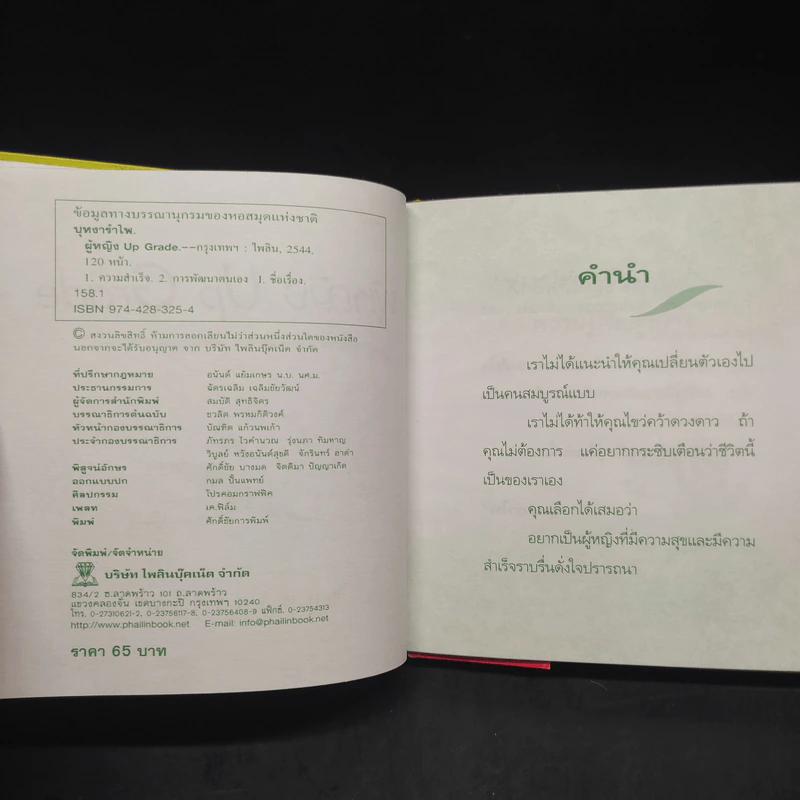 ข้อมูลทางบรรณานุกรมของหอสมุดแห่งชาติ
บุหงารำไพ.
ผู้หญิง Up Grade.--กรุงเทพฯ : ไพลิน, 2544.
120 หน้า.
1. ความสำเร็จ. 2. การพัฒนาตนเอง I. ชื่อเรื่อง.
158.1
ISBN 974-428-325-4
© สงวนลิขสิทธิ์ ห้ามการลอกเลียนไม่ว่าส่วนหนึ่งส่วนใดของหนังสือ
นอกจากจะได้รับอนุญาต จาก บริษัท ไพลินบุ๊คเน็ต จำกัด
ที่ปรึกษากฎหมาย อนันต์ แย้มเกษร น.บ. นศ.ม.
ประธานกรรมการ ฉัตรเฉลิม เฉลิมชัยวัฒน์
ผู้จัดการสำนักพิมพ์ สมบัติ สุทธิจิตร
บรรณาธิการต้นฉบับ ชวลิต พรหมกิติวงศ์
หัวหน้ากองบรรณาธิการ บัณฑิต แก้วนพเก้า
ประจำกองบรรณาธิการ ภัทรภร ไวคำนวณ รุ่งนภา ทิมหาญ
วิบูลย์ หวังอนันต์สุขดี จักรินทร์ ฮาดำ
พิสูจน์อักษร ศักดิ์ชัย บางมด จิตติมา ปัญญาเกิด
ออกแบบปก กมล ปั้นแพทย์
ศิลปกรรม โปรคอมกราฟฟิค
เพลท เค.ฟิล์ม
พิมพ์ ศักดิ์ชัยการพิมพ์
จัดพิมพ์/จัดจำหน่าย
บริษัท ไพลินบุ๊คเน็ต จำกัด
834/2 ซ.ลาดพร้าว 101 ถ.ลาดพร้าว
แขวงคลองจั่น เขตบางกะปิ กรุงเทพฯ 10240
โทร. 0-27310621-2, 0-23756117-8, 0-23756408-9 แฟ็กซ์. 0-23754313
http://www.phailinbook.net E-mail: info@phailinbook.net
ราคา 65 บาท
คำนำ
เราไม่ได้แนะนำให้คุณเปลี่ยนตัวเองไป
เป็นคนสมบูรณ์แบบ
เราไม่ได้ท้าให้คุณไขว่คว้าดวงดาว ถ้า
คุณไม่ต้องการ แค่อยากกระซิบเตือนว่าชีวิตนี้
เป็นของเราเอง
คุณเลือกได้เสมอว่า
อยากเป็นผู้หญิงที่มีความสุขและมีความ
สำเร็จราบรื่นดั่งใจปรารถนา